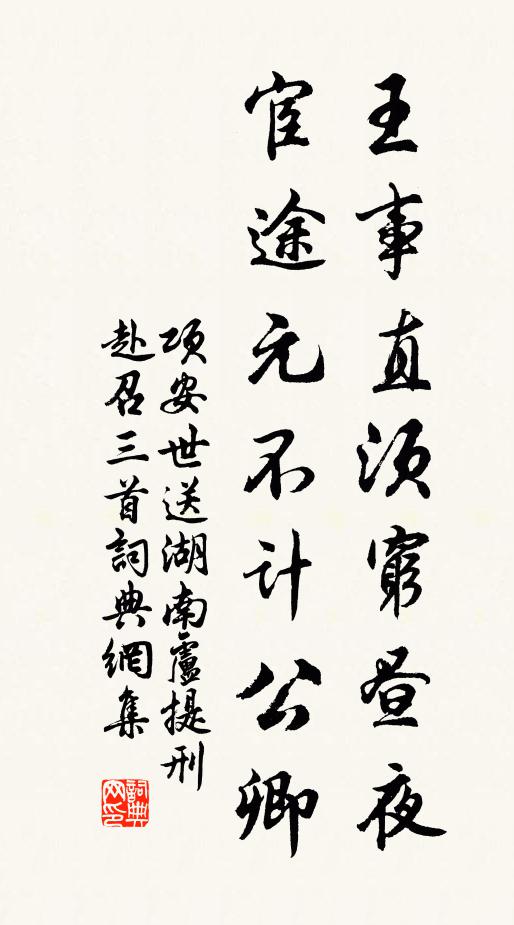 王事直須窮晝夜
宦途元不計公卿
項安世送湖南盧提刑
赴召三首詞典網集
詞典
网印